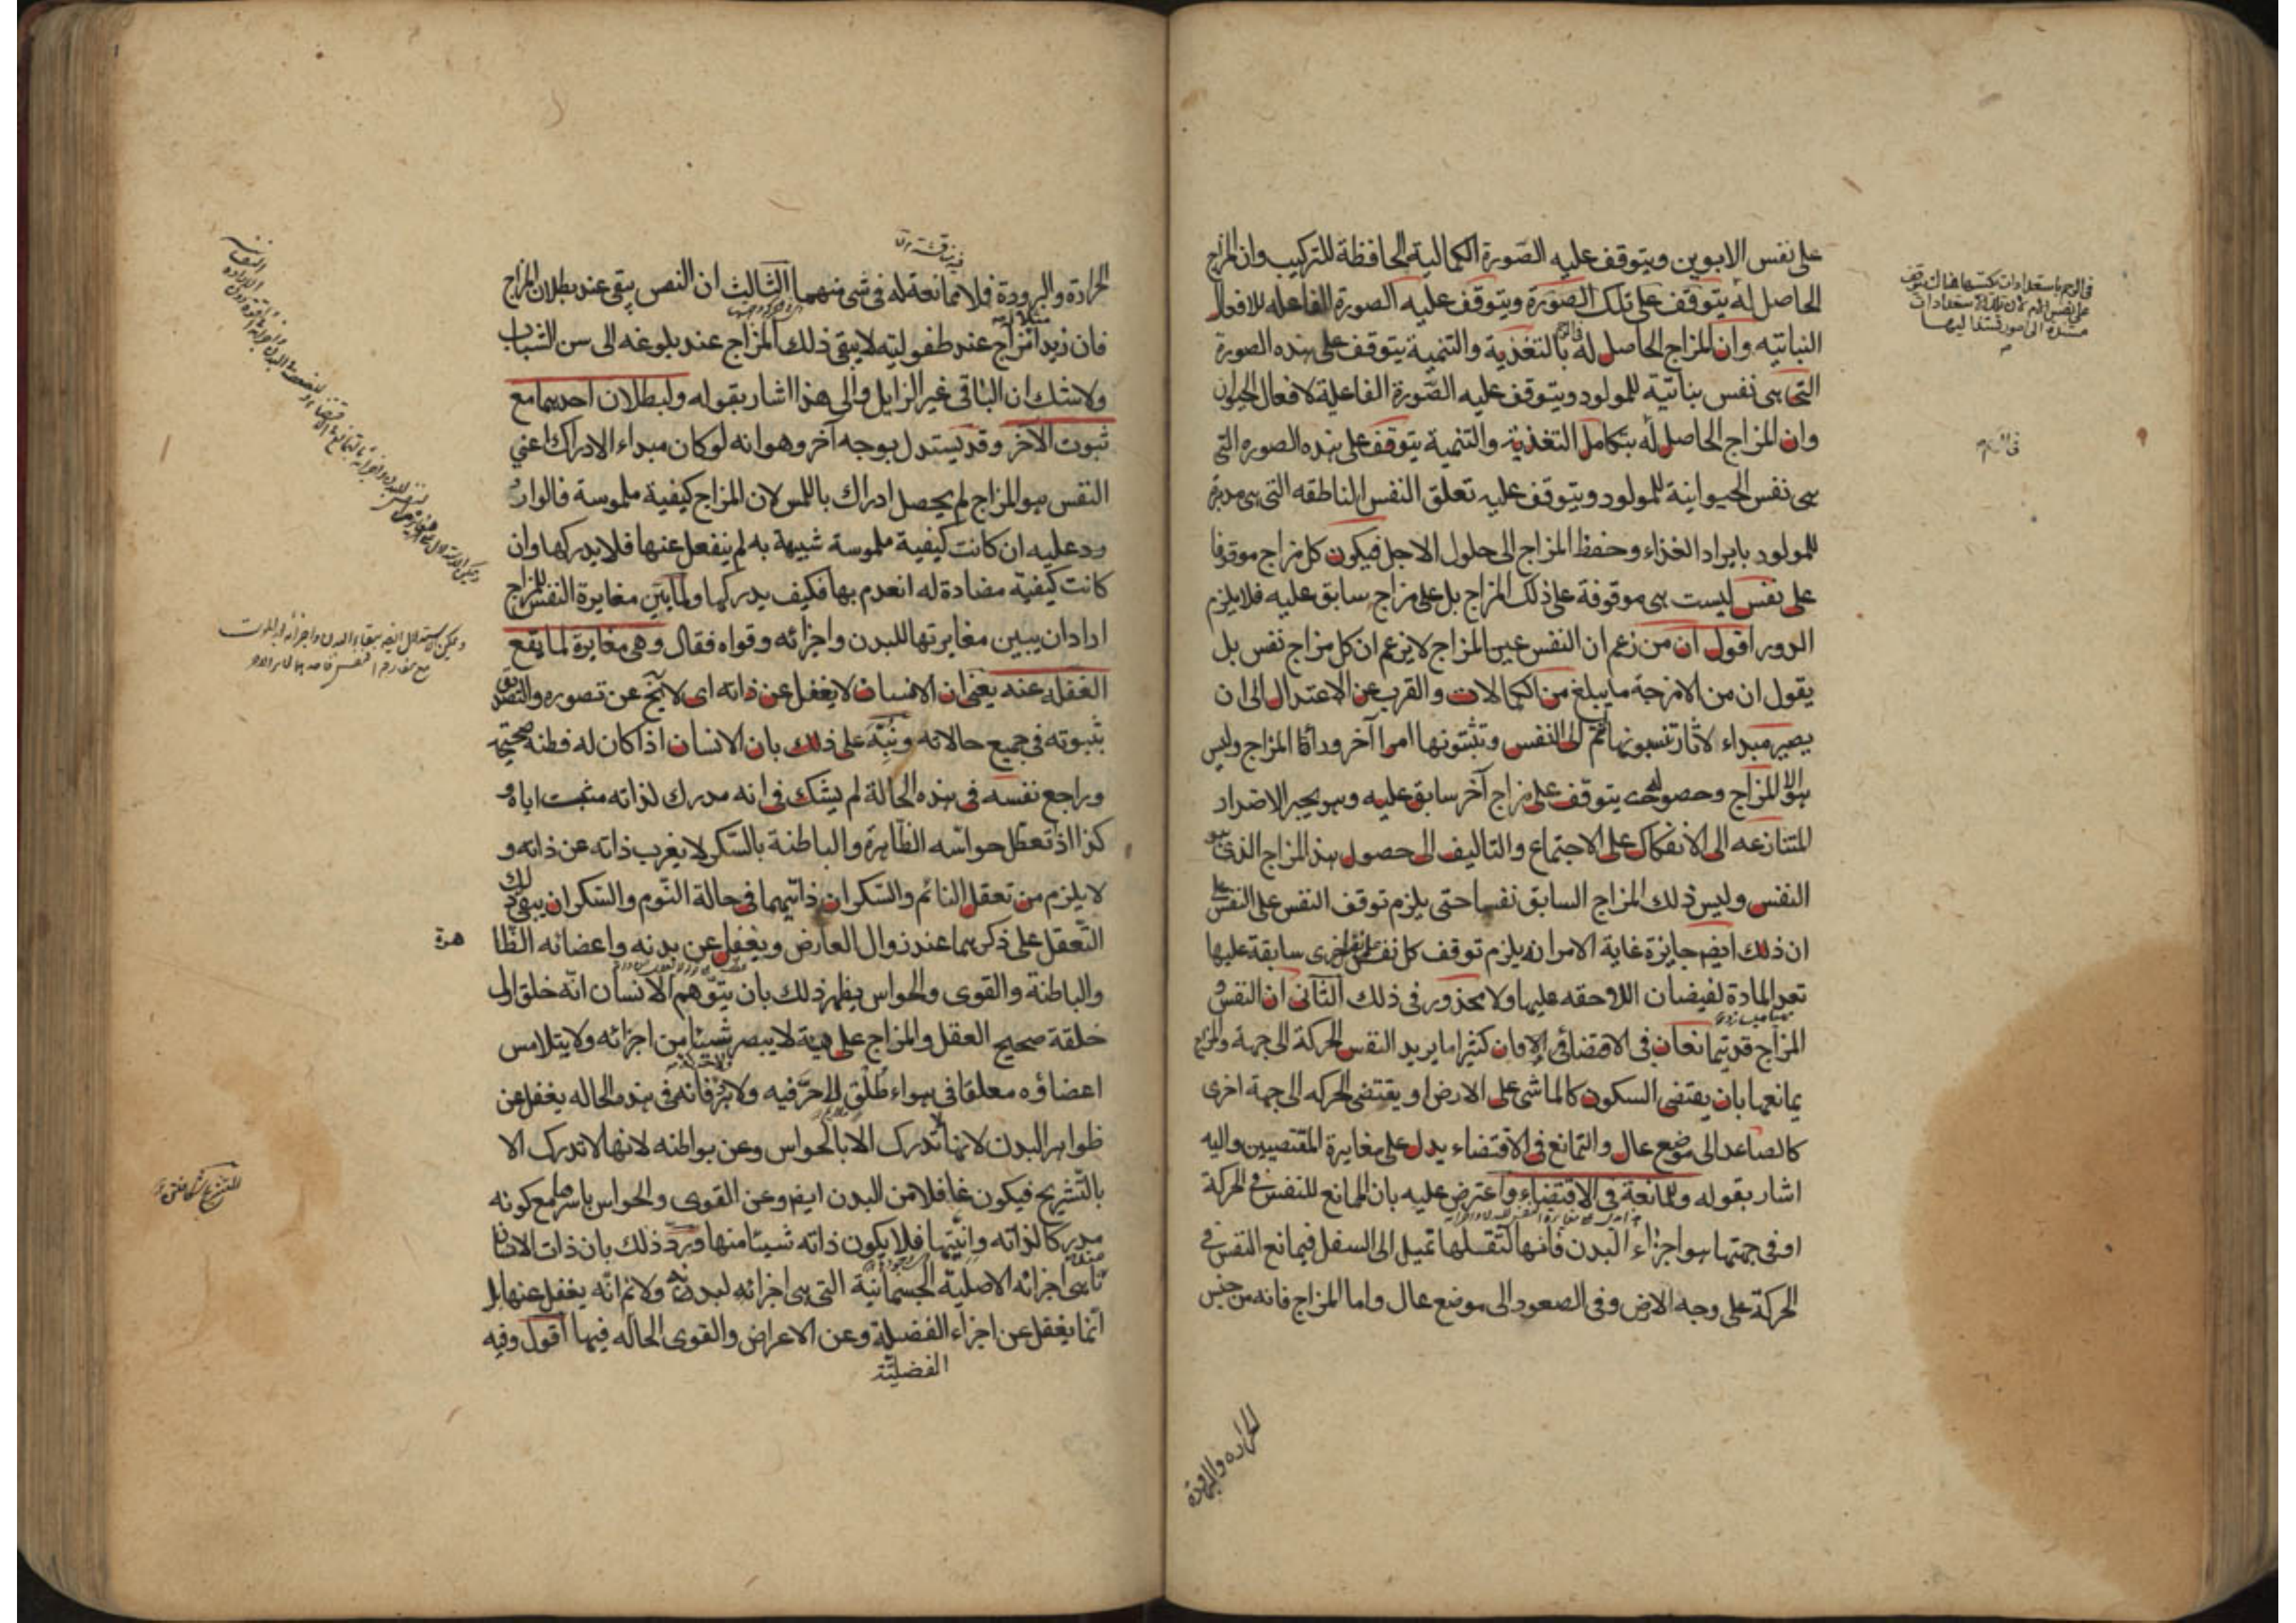 على نفس الابوين ويتوقف عليه الصورة الكمالية الحافظة للتركيب وان المزاج
الحاصل له يتوقف على تلك الصورة ويتوقف عليه الصورة الفاعله للافعال
النباتيه وان المزاج الحاصل له بالتغذية والتنمية يتوقف على هذه الصورة
التى هى نفس بناتية للمولود ويتوقف عليه الصورة الفاعلية لافعال الحيوان
وان المزاج الحاصل له بتكامل التغذية والتنمية يتوقف على هذه الصوره التى
هى نفس الحيوانية للمولود ويتوقف عليه تعلق النفس الناطقه التى هى مدبرة
للمولود بايراد الغذاء وحفظ المزاج الى حلول الاجل فيكون كل مزاج موقوفا
على نفس ليست هى موقوفة على ذلك المزاج بل على مزاج سابق عليه فلا يلزم
الدور اقول ان من زعم ان النفس عين المزاج لا يزعم ان كل مزاج نفس بل
يقول ان من الامزجة ما يبلغ من الكمالات والقرب عن الاعتدال الى ان
يصير مبداء لاثار تنسبونها انتم الى النفس وتثبتونها امرا آخر وراء المزاج وليس
هو الا المزاج وحصوله يتوقف على مزاج آخر سابق عليه وهو يجبر الاضداد
المتنازعه الى الانفكاك على الاجتماع والتاليف الى حصول هذا المزاج الذى هو
النفس وليس ذلك المزاج السابق نفسا حتى يلزم توقف النفس على النفس على
ان ذلك ايضا جايزة غاية الامر انه يلزم توقف كل نفس على نفس اخرى سابقة عليها
تعد المادة لفيضان اللاحقه عليها ولا محذور فى ذلك الثانى ان النفس و
المزاج قد يتمانعان فى الاقتضاء فان كثيرا ما يريد النفس الحركة الى جهة والمزاج
يمانعها بان يقتضى السكون كالماشى على الارض او يقتضى الحركه الى جهة اخرى
كالصاعد الى موضع عال والتمانع فى الاقتضاء يدل على مغايرة المقتضيين واليه
اشار بقوله وللممانعة فى الاقتضاء واعترض عليه بان الممانع للنفس فى الحركة
او فى جهتها هو اجزاء البدن فانها لثقلها تميل الى السفل فيمانع النفس فى
الحركة على وجه الارض وفى الصعود الى موضع عال واما المزاج فانه من جنس
الحرارة والبرودة
فى الرحم
الحرارة والبرودة فلا ممانعة له فى شى منهما الثالث ان النفس يبقى عند بطلان المزاج
فان زيدا مزاج عند طفوليته لا يبقى ذلك المزاج عند بلوغه الى سن الشباب
ولا شك ان الباقى غير الزايل والى هذا اشار بقوله ولبطلان احدهما مع
ثبوت الآخر وقد يستدل بوجه آخر وهو انه لو كان مبداء الادراك اعني
النفس هو المزاج لم يحصل ادراك باللمس لان المزاج كيفية ملموسة فالوار
ود عليه ان كانت كيفية ملموسة شبيهة به لم ينفعل عنها فلا يدركها وان
كانت كيفية مضادة له انعدم بها فكيف يدركها ولما بين مغايرة النفس للمزاج
اراد ان يبين مغايرتها للبدن واجزائه وقواه فقال وهى مغايرة لما يقع
الغفلة عنه يعنى ان الانسان لا يغفل عن ذاته اى لا يخ عن تصوره والتصديق
بثبوته فى جميع حالاته ونبه على ذلك بان الانسان اذا كان له فطنة صحيحة
وراجع نفسه فى هذه الحالة لم يشك فى انه مدرك لذاته مثبت اياه و
كذا اذ تعطل حواسه الظاهرة والباطنة بالسكر لا يغرب ذاته عن ذاته و
لا يلزم من تعقل النائم والسكران ذاتيهما فى حالة النوم والسكر ان يبقى ذلك
التعقل على ذكرهما عند زوال العارض ويغفل عن بدنه واعضائه الظا
هرة
والباطنة والقوى والحواس يظهر ذلك بان يتوهم الانسان انه خلق اول
خلقة صحيح العقل والمزاج على هيئة لا يبصر شيئا من اجزائه ولا يتلامس
اعضاؤه معلقا فى هواء طلق لا حر فيه ولا برد فانه فى هذه الحاله يغفل عن
ظواهر البدن لانها لا تدرك الا بالحواس وعن بواطنه لانها لا تدرك الا
بالتشريح فيكون غافلا من البدن ايضا وعن القوى والحواس باسرها مع كونه
مدركا لذاته وانيتها فلا يكون ذاته شيئا منها ورد ذلك بان ذات الانسان
هى اجزائه الاصلية الجسمانية التى هى اجزائه لبدنه ولا نم انه يغفل عنها بل
انما يغفل عن اجزاء الفضلية وعن الاعراض والقوى الحاله فيها اقول وفيه
الفضليّة